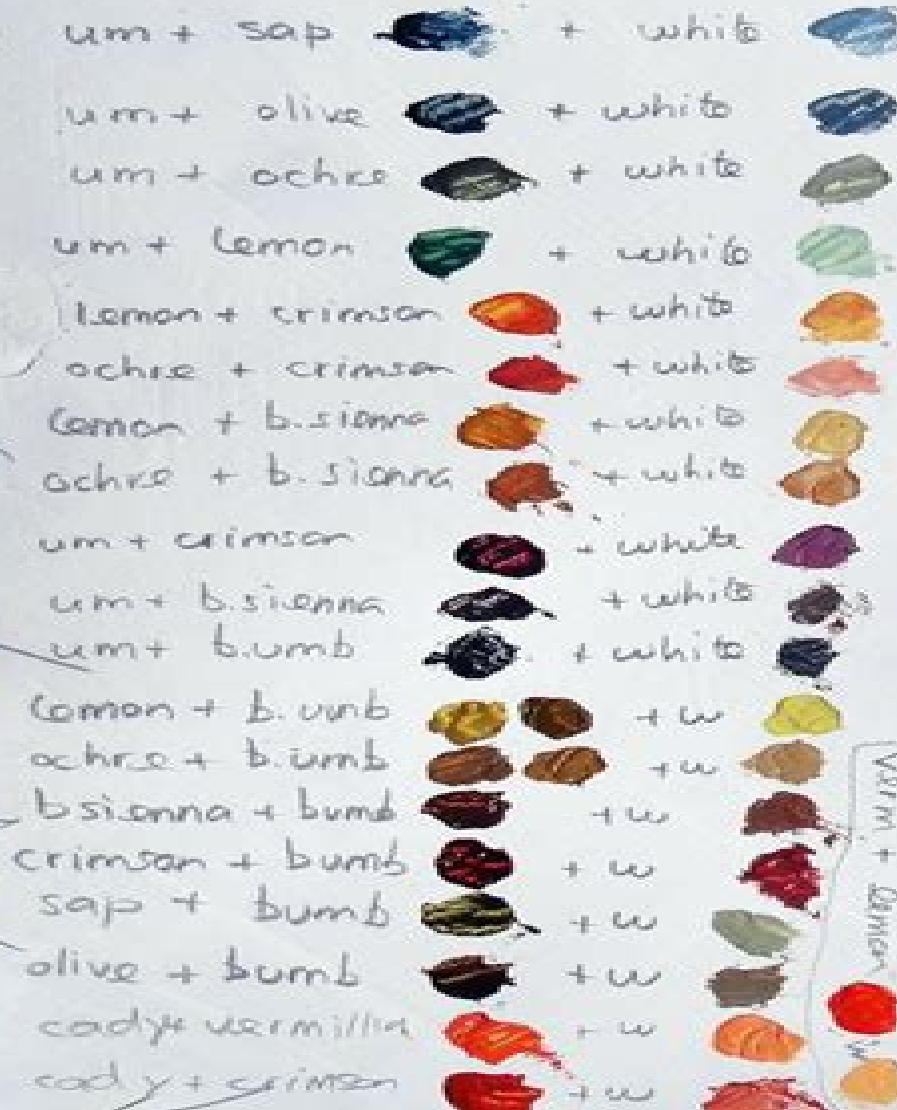 um + sap + white
um + olive + white
um + ochre + white
um + lemon + white
lemon + crimson + white
ochre + crimson + white
lemon + b.sienna + white
ochre + b.sienna + white
um + crimson + white
um + b.sienna + white
um + b.umb + white
lemon + b.umb + w
ochre + b.umb + w
bsienna + bumb + w
crimson + bumb + w
sap + bumb + w
olive + bumb + w
cady + vermillin + w
cad y + crimson + w
Verm + lemon
w